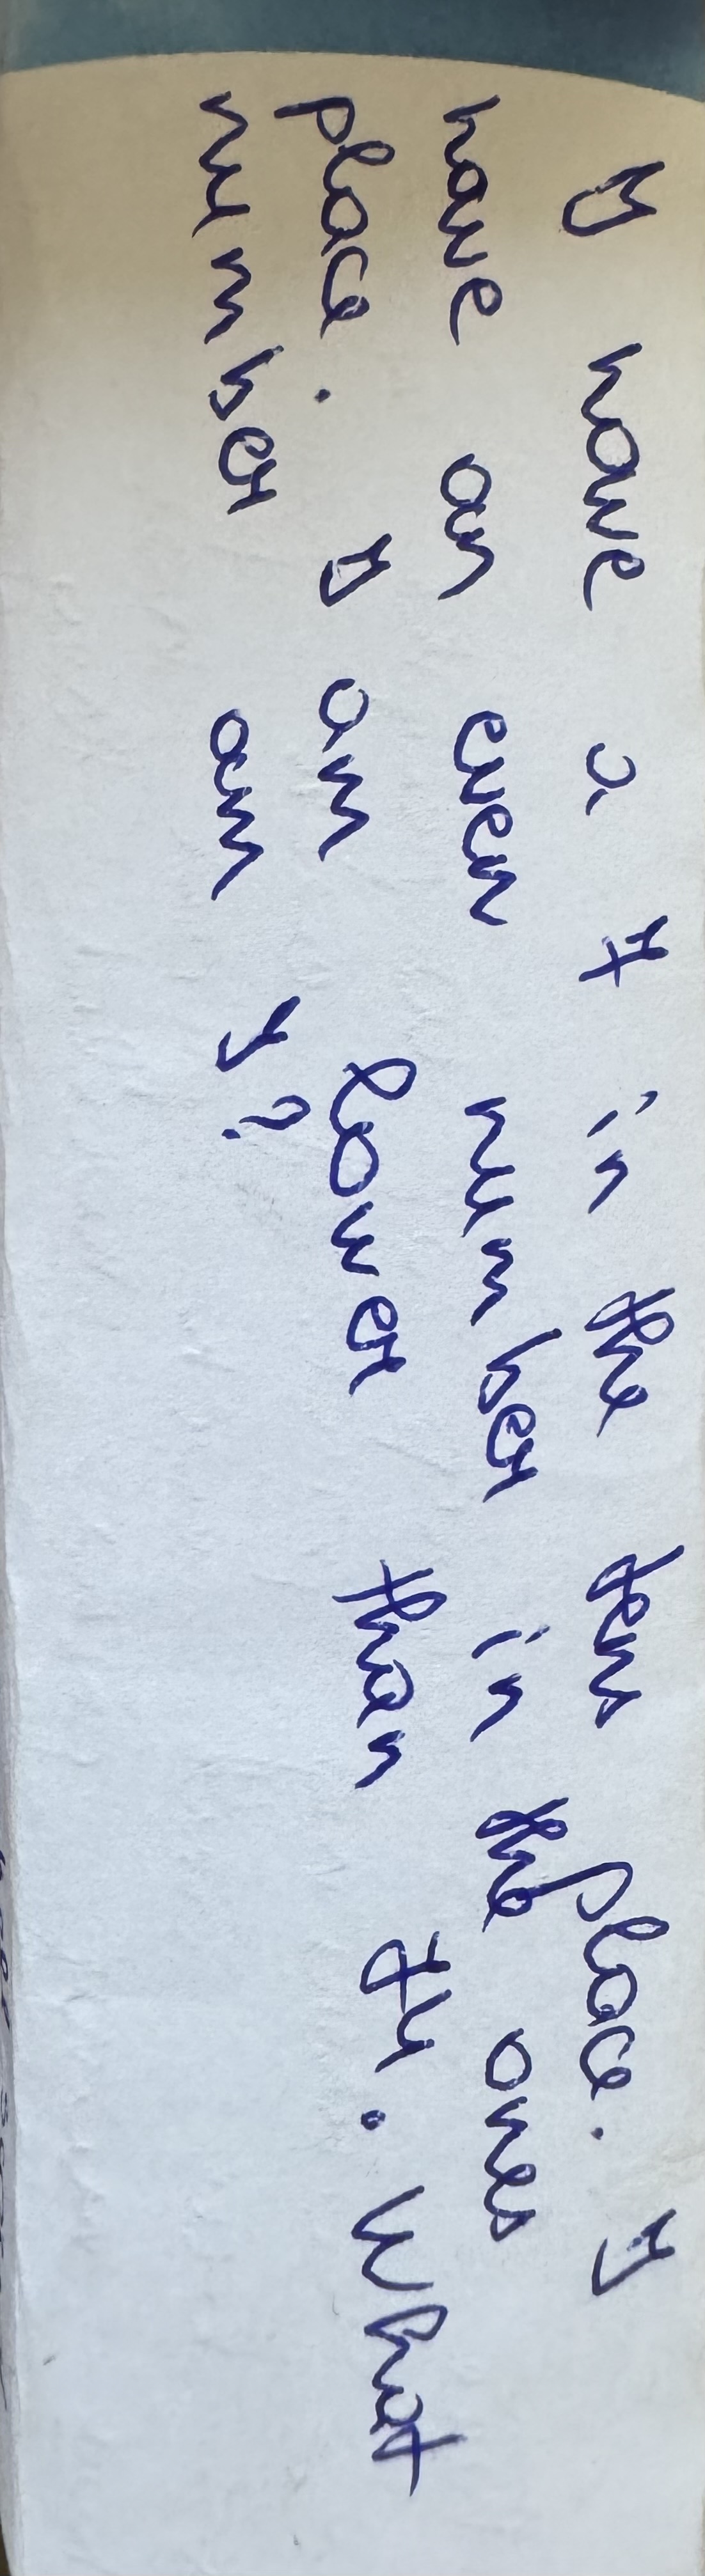 I have a 7 in the tens place. I
have an even number in the ones
place. I am lower than 74. What
number am I?